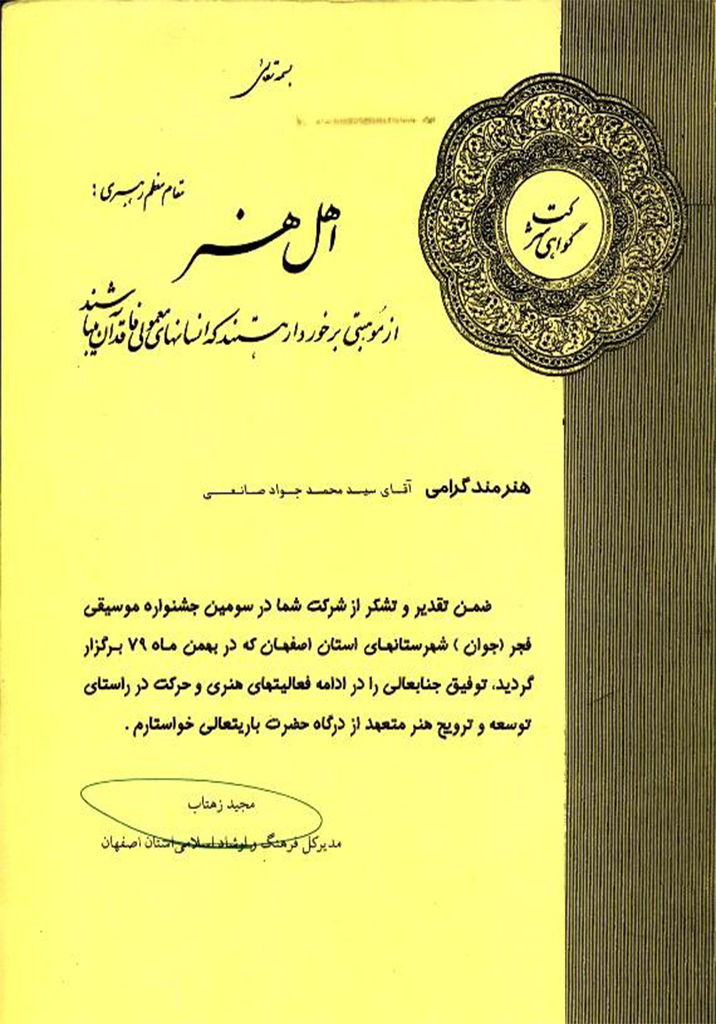 بسمه تعالی
گواهی شرکت
مقام معظم رهبری :
اهل هنر
از موهبتی برخوردار هستند که انسانهای معمولی فاقد آن میباشند
هنرمند گرامی آقای سید محمد جواد صانعی
ضمن تقدیر و تشکر از شرکت شما در سومین جشنواره موسیقی
فجر (جوان ) شهرستانهای استان اصفهان که در بهمن ماه ۷۹ برگزار
گردید، توفیق جنابعالی را در ادامه فعالیتهای هنری و حرکت در راستای
توسعه و ترویج هنر متعهد از درگاه حضرت باریتعالی خواستارم .
مجید زهتاب
مدیرکل فرهنگ و ارشاد اسلامی استان اصفهان